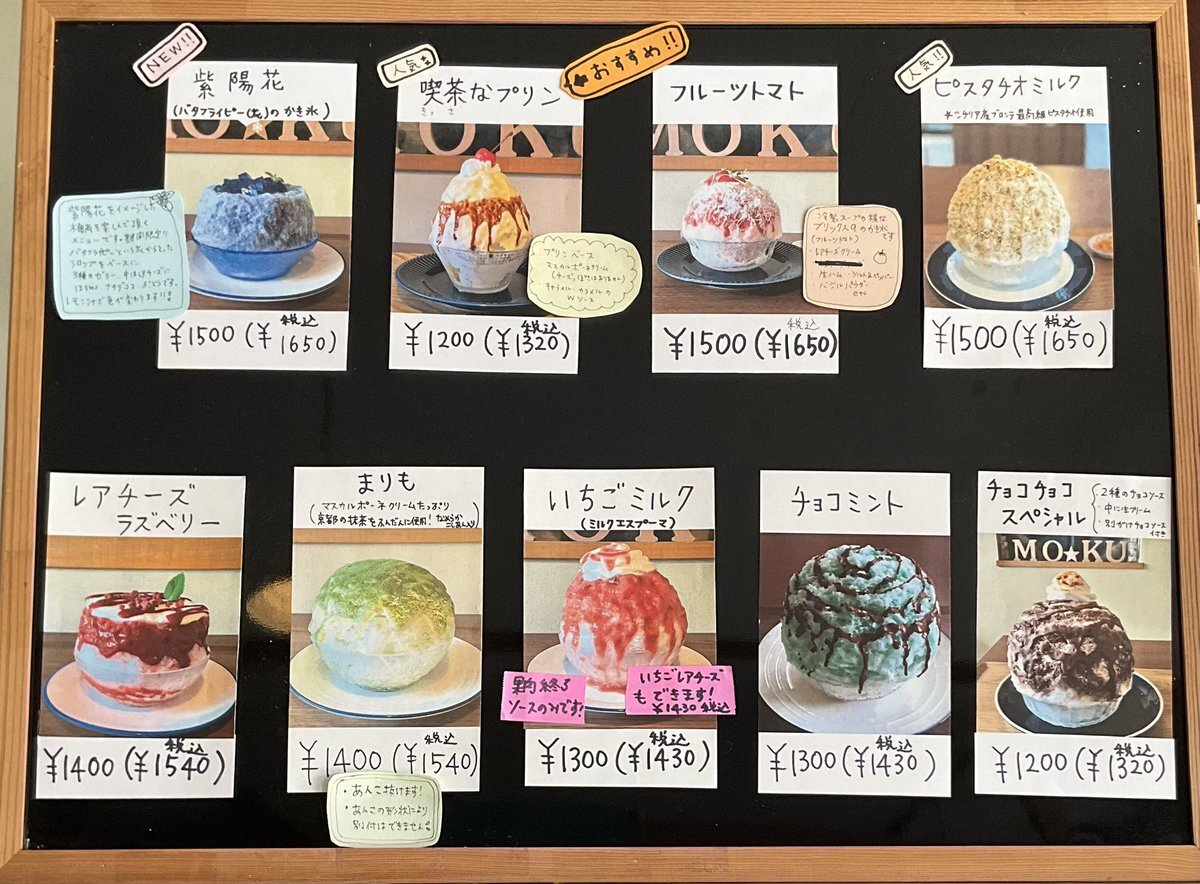 NEW!!
紫陽花
(バタフライピー(花)のかき氷)
紫陽花をイメージした
梅雨を楽しんで頂く
メニューです。期間限定
バタフライピーという花からとった
シロップをベースに
3種のゼリー 中はレアチーズに
はちみつ ナタデココ
レモン汁で色が変わります!!
¥1500(¥1650)
税込
人気
喫茶なプリン
きっさ
MOKU
プリンベース
マスカルポーネクリーム
(チーズっぽさはありません)
キャラメル・カラメルの
Wソース
¥1200(¥1320)
税込
おすすめ!!
フルーツトマト
MOKU
冷製スープの様な
ブリックス9のかき氷です
(フルーツトマト)
・レアチーズクリーム
・生ハム・ソルト&ペッパー
・バジルパウダー
etc
¥1500(¥1650)
税込
人気!!
ピスタチオミルク
*シチリア産ブロンテ最高級ピスタチオ使用
¥1500(¥1650)
税込
レアチーズ
ラズベリー
¥1400(¥1540)
税込
まりも
マスカルポーネクリームたっぷり
(京都の抹茶をふんだんに使用! なめらかこしあん入り)
¥1400(¥1540)
税込
・あんこ抜けます!
・あんこの形状により
別付はできません。
いちごミルク
(ミルクエスプーマ)
果肉終了
ソースのみです!
いちごレアチーズ
もできます!
¥1430 税込
¥1300(¥1430)
税込
チョコミント
¥1300(¥1430)
税込
チョコチョコ
スペシャル
・2種のチョコソース
・中に生クリーム
・別がけチョコソース
付き
MO★KU
¥1200(¥1320)
税込